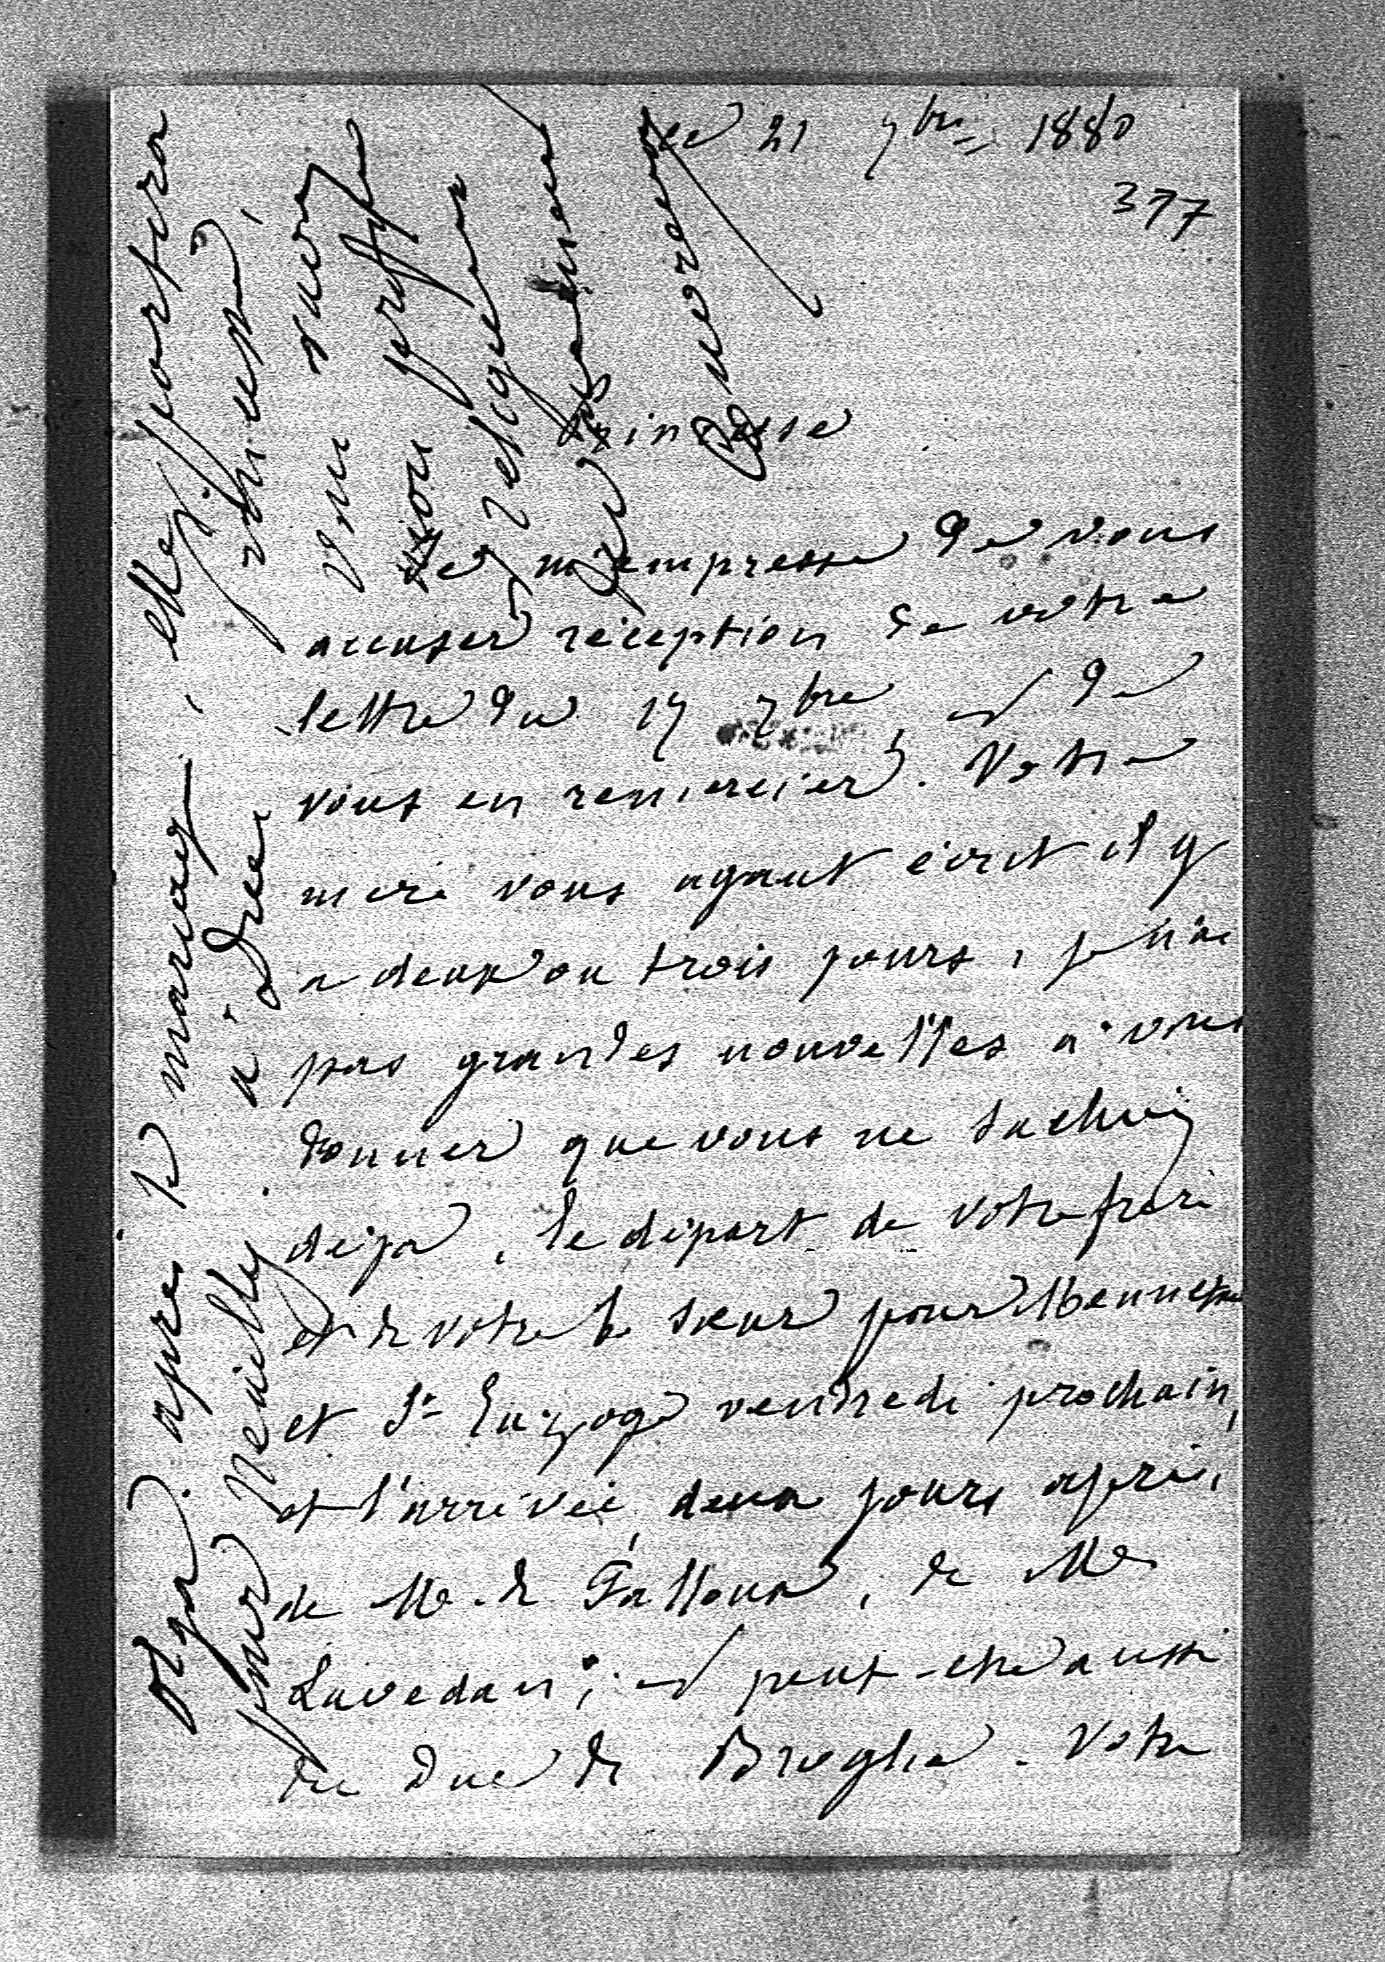 ce 21 7bre 1880
377
Princesse
Je m'empresse de vous
accuser réception de votre
lettre du 17 7bre, et de
vous en remercier. Votre
mère vous ayant écrit il y
a deux ou trois jours, je n'ai
pas grandes nouvelles à vous
donner que vous ne sachiez
déja, le départ de votre frère
et de votre b. soeur pour Mennetou
et St vendredi prochain,
et l'arrivée, deux jours après,
de M. de Falloux, de M.
Lavedan; et peut-etre aussi
du Duc de Broglie. Votre
Olga. après le mariage, elle partira
pour Neuilly. à Dreux
vous savez
mon
religieux